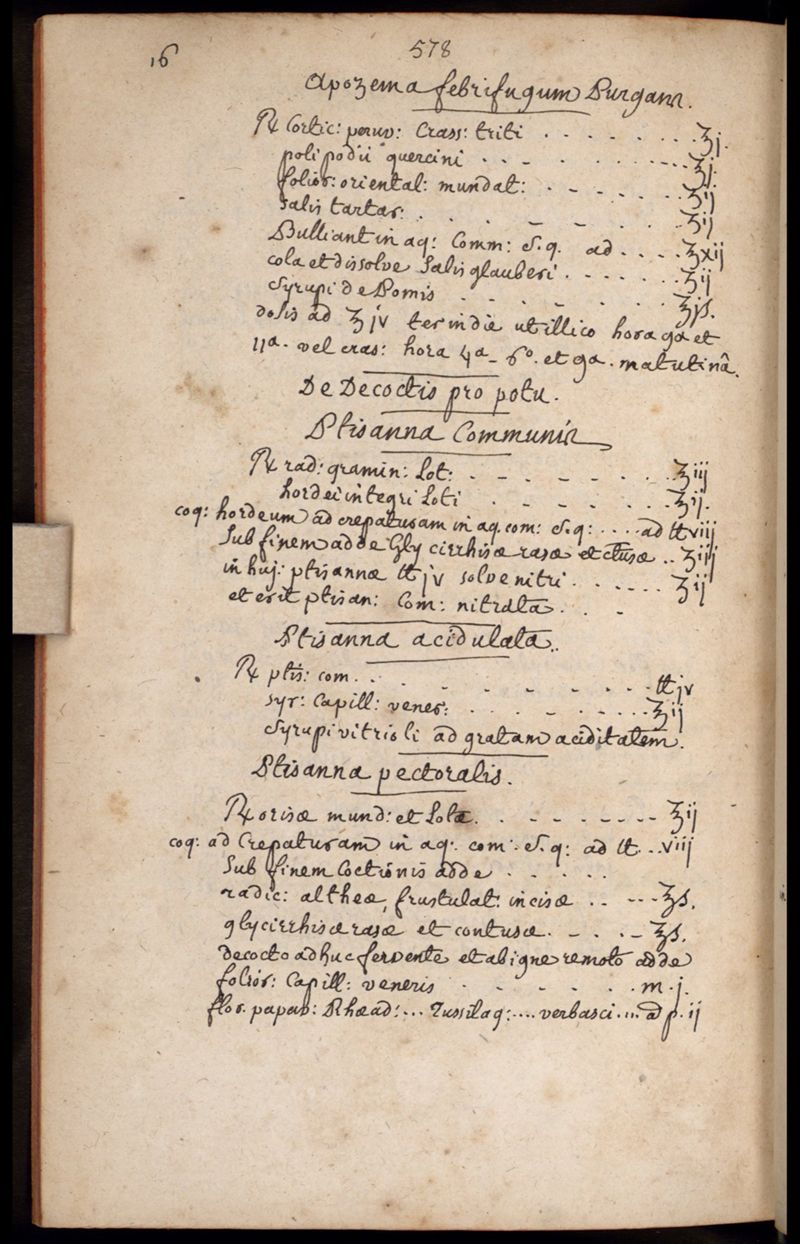 16
578
Apozema febrifugum Purgans.
℞ Cortic: peruv: Crass: triti . . . . . . . ʒj.
polipodii quercini . . - . . . . - . . ʒj.
folior: oriental: mundat: . - . . - . . ʒij
Salis tartar: . . - - . . - . . ʒij
Bulliant in aq: Comm: S. q. ad . . . . ʒxij
cola et dissolve Salis glauberi . . . . . . . ʒij
Syrupi de Pomis . - . . - . . . . ʒjſ.
dosis ad ʒjv ter in die ut illico hora 9a et
11a. vel cras: hora 4a - 6a. et 9a. matutinâ.
De Decoctis pro potu.
Ptisanna Communis
℞ rad: gramin: Lot: . - . . - . . . . ʒiij
hordei integri Loti . - . - . . . ʒij.
coq: hordeum ad crepaturam in aq. com: S. q: . . . . ad ℔viij
Sub finem adde Glycirrhisæ rasæ et Ctusæ . . ʒiij
in huj: ptisannæ ℔jv solve nitri . . . . . . ʒij
et erit ptisan: Com: nitrata . . -
Ptisanna acidulata.
℞ ptis: com . . . - . - . - . . . ℔jv
Syr: Capill: vener: . . . . - . . . . ʒij
Syrupi vitrioli ad gratam aciditatem.
Ptisanna pectoralis.
℞ orisæ mund: et Lotæ . . - . - - - - - - ʒij
coq: ad Crepaturam in aq: com: S. q: ad ℔ . . viij
Sub finem Coctionis adde . . . . .
radic: altheæ, frustulat: incisæ . . - - - ʒſ.
glycirrhisæ rasæ et contusæ . - . . - ʒſ.
decocto adhuc fervente et ab igne remoto adde
folior: Capill: veneris . - . - . - . . m. j.
flor. papav: Rhœad: . . . Tussilag: . . . . verbasci . . . . ā p. ij